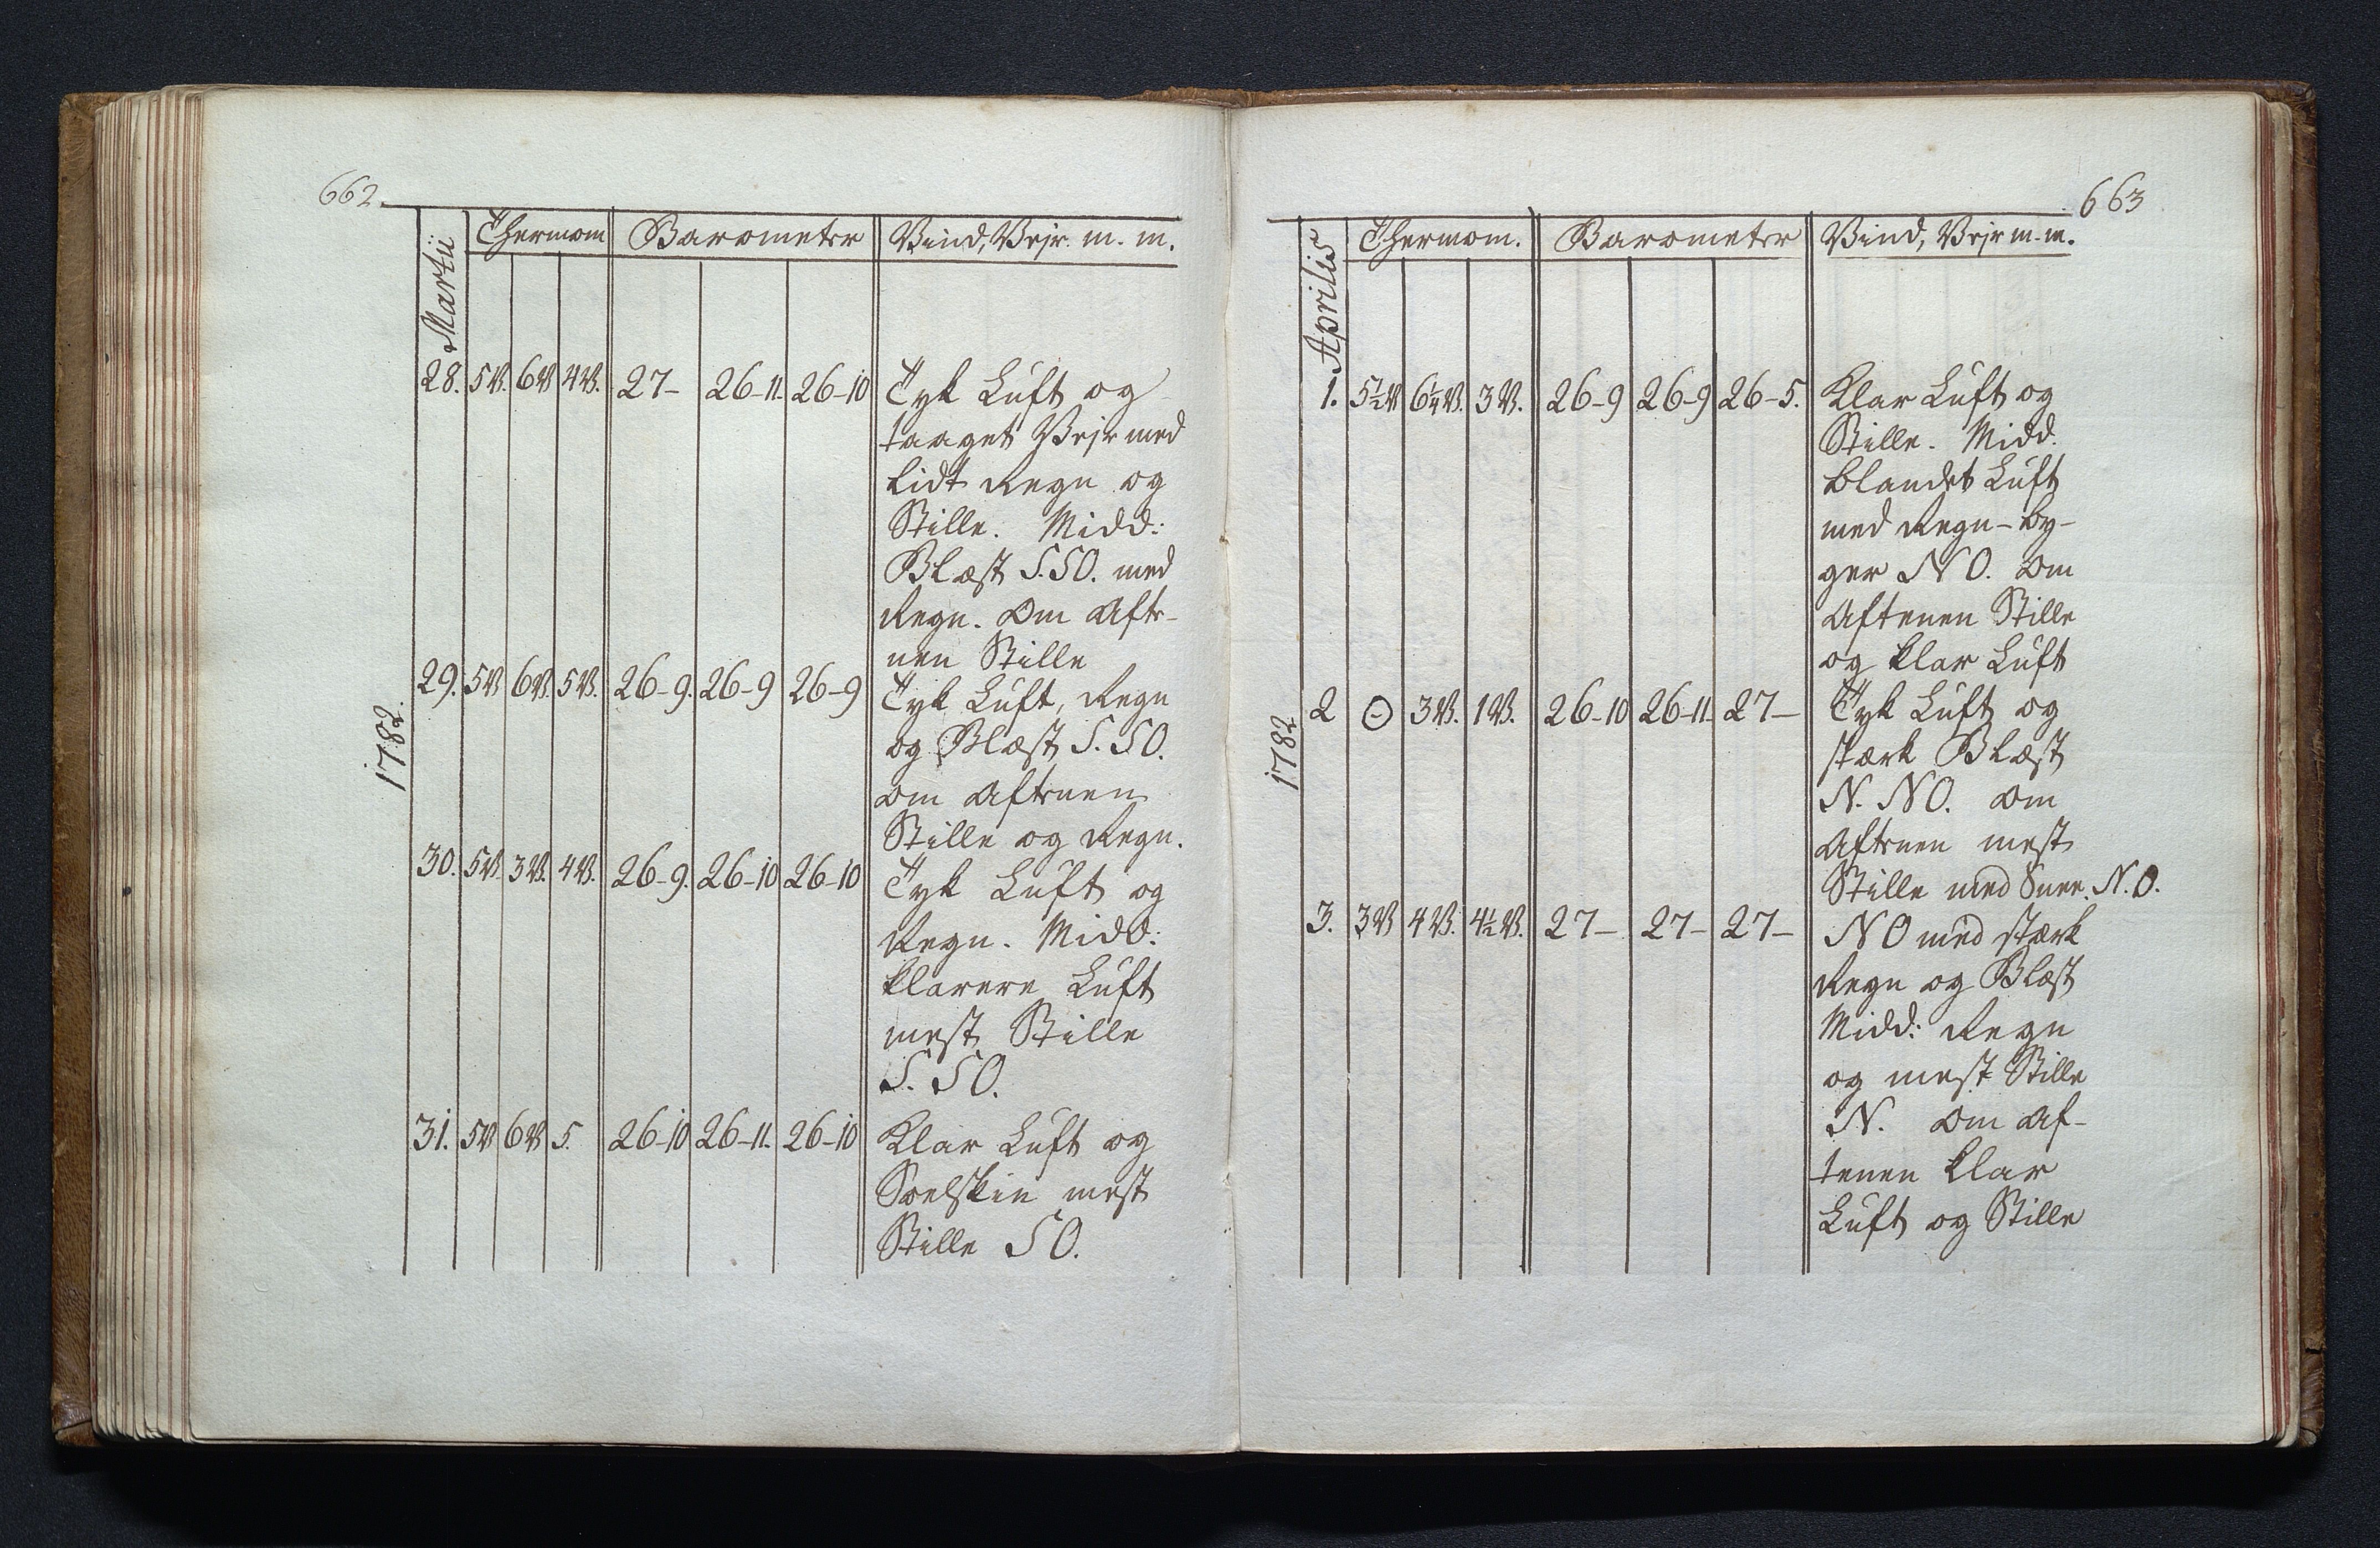 662.
Martii
Thermom
Barometer
Vind, Vejr. m. m.
28. 5V. 6V 4V. 27- 26-11. 26-10 Tyk Luft og
taaget Vejr med
lidt Regn og
Stille. Midd:
Blæst S.SO. med
Regn. Om Afte-
nen Stille
29. 5V 6V. 5V. 26-9. 26-9 26-9 Tyk Luft, Regn
og Blæst S.SO.
om Aftenen
Stille og Regn.
1782.
30. 5V. 3V. 4V. 26-9. 26-10 26-10 Tyk Luft og
Regn. Midd:
klarere Luft
mest Stille
S.SO.
31. 5V 6V 5. 26-10 26-11. 26-10 Klar Luft og
Soelskin mest
Stille SO.
663
Aprilis
Thermom.
Barometer
Vind, Vejr m.m.
1. 5½V 6¼V. 3V. 26-9 26-9 26-5. Klar Luft og
Stille. Midd.
blandet Luft
med Regn-by-
ger NO. Om
Aftenen Stille
og klar Luft
1782
2 ⊙ 3V. 1V. 26-10 26-11- 27- Tyk Luft og
stærk Blæst
N.NO. Om
Aftenen mest
Stille med Snee. N.O.
3. 3V 4V. 4½V. 27- 27- 27- NO med stærk
Regn og Blæst
Midd: Regn
og mest Stille
N. Om Af-
tenen klar
Luft og Stille